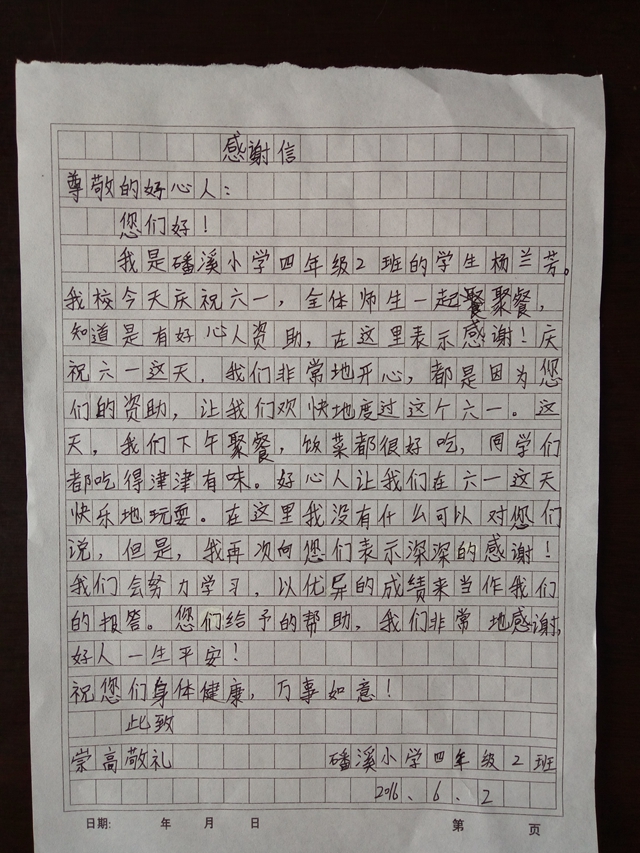 感谢信
尊敬的好心人：
您们好！
我是磻溪小学四年级2班的学生杨兰芳。
我校今天庆祝六一，全体师生一起聚餐，
知道是有好心人资助，在这里表示感谢！庆
祝六一这天，我们非常地开心，都是因为您
们的资助，让我们欢快地度过这个六一。这
天，我们下午聚餐，饭菜都很好吃，同学们
都吃得津津有味。好心人让我们在六一这天
快乐地玩耍。在这里我没有什么可以对您们
说，但是，我再次向您们表示深深的感谢！
我们会努力学习，以优异的成绩来当作我们
的报答。您们给予的帮助，我们非常地感谢，
好人一生平安！
祝您们身体健康，万事如意！
此致
崇高敬礼 磻溪小学四年级2班
2016、6、2
日期: 年 月 日 第 页